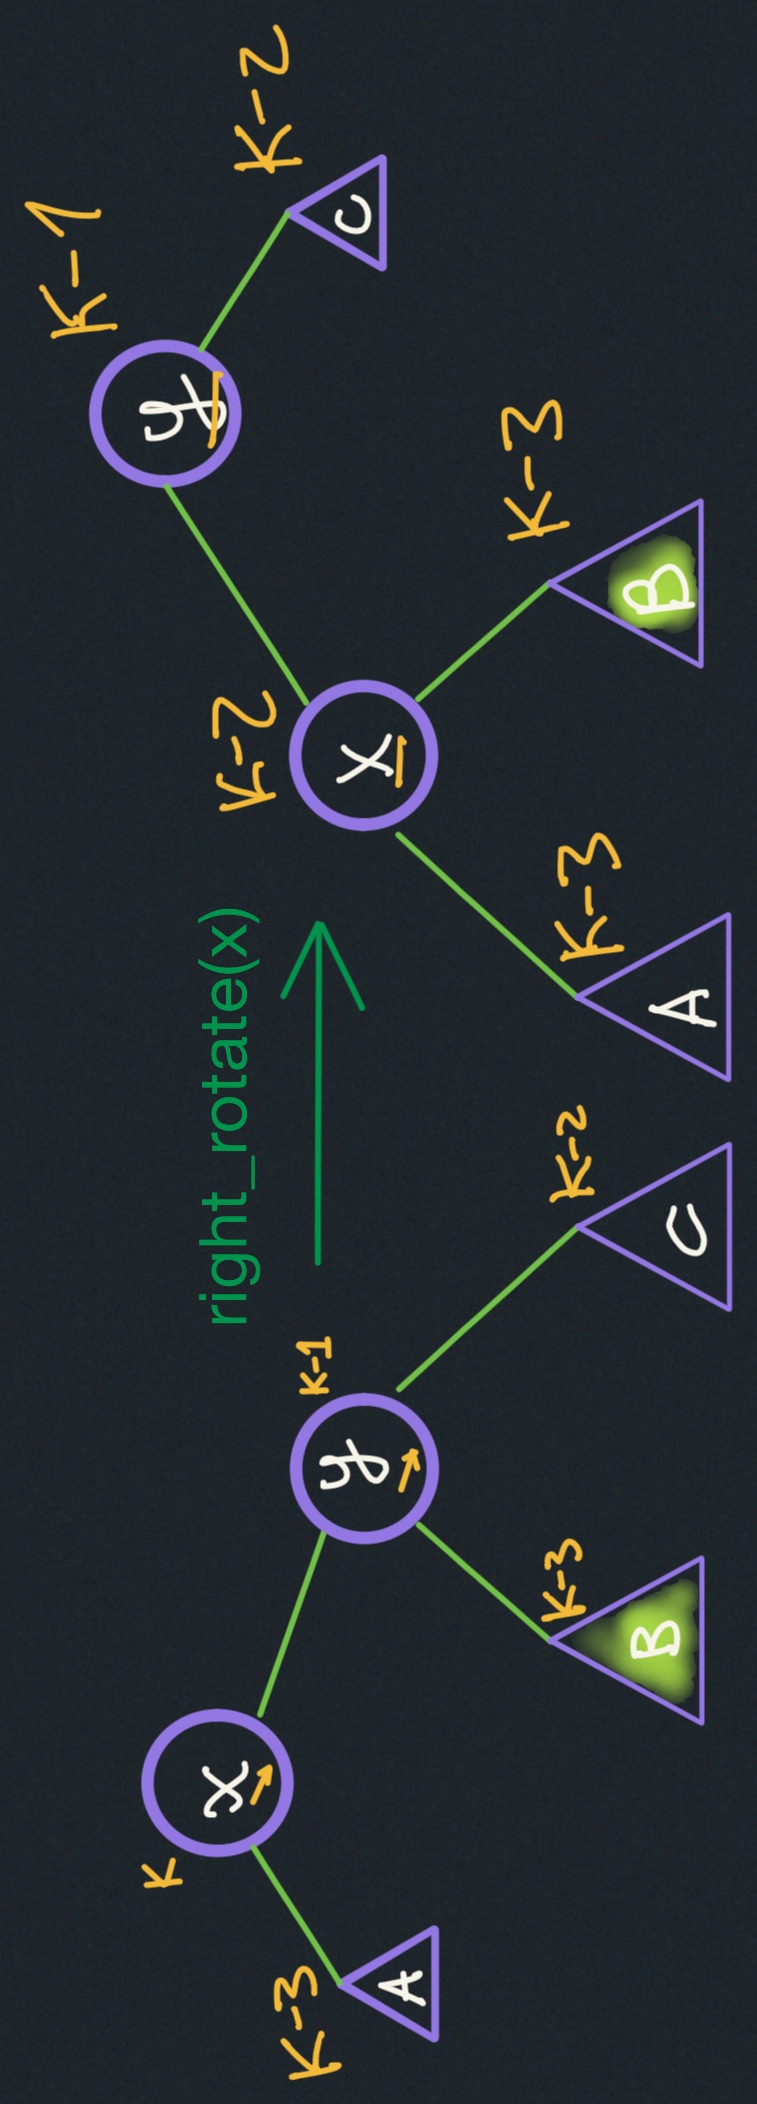 K
x
K-3
A
y
K-1
K-3
B
K-2
C
right_rotate(x)
K-1
y
K-2
x
K-2
C
K-3
A
K-3
B